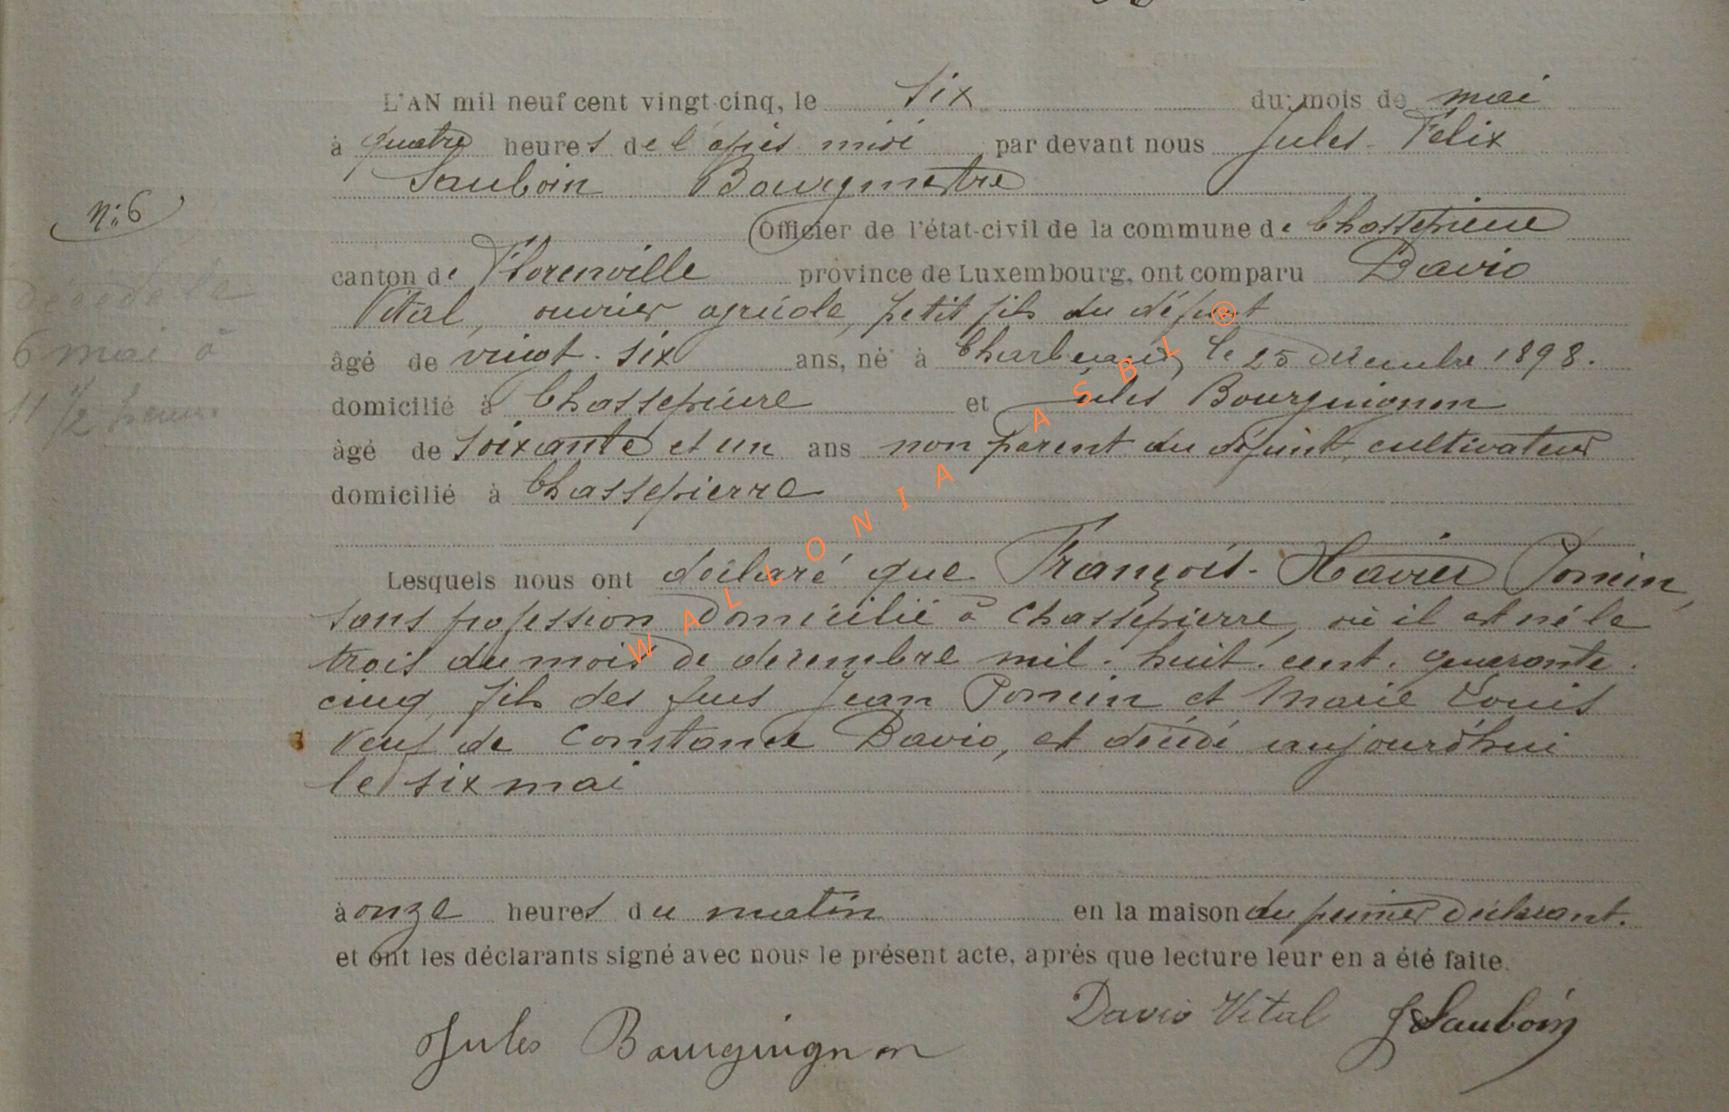 L'AN mil neuf cent vingt-cinq, le six du mois de mai
à quatre heures de l'après midi par devant nous Jules-Félix
Sauboin Bourgmestre
N: 6
Officier de l'état-civil de la commune de Chassepierre
canton de Florenville province de Luxembourg, ont comparu David
Décédé le
Vital, ouvrier agricole, petit fils du défunt
6 mai à
âgé de vingt-six ans, né à le 25 décembre 1898.
11 1/2 heures
domicilié à Chassepierre et Jules Bourguignon
âgé de soixante et un ans non parent du défunt, cultivateur
domicilié à Chassepierre
Lesquels nous ont déclaré que François-Xavier Poncin,
sans profession domicilié à Chassepierre, où il est né le
trois du mois de décembre mil-huit-cent-quarante-
cinq, fils des feus Jean Poncin et Marie Louis
veuf de Constance David, est décédé aujourd'hui
le six mai
à onze heures du matin en la maison du premier déclarant.
et ont les déclarants signé avec nous le présent acte, après que lecture leur en a été faite.
David Vital JSauboin
Jules Bourguignon
WALLONIA ASBL ®